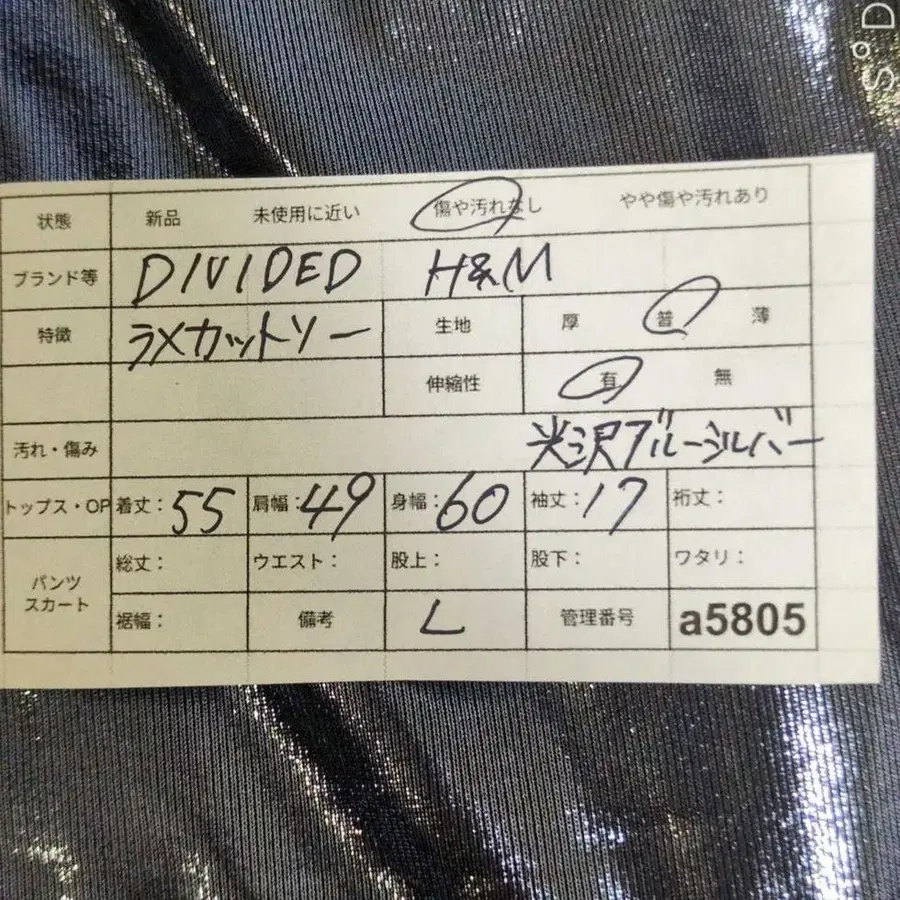 状態 新品 未使用に近い 傷や汚れなし やや傷や汚れあり
ブランド等 DIVIDED H&M
特徴 ラメカットソー 生地 厚 普 薄
伸縮性 有 無
汚れ・傷み 光沢ブルーシルバー
トップス・OP 着丈:55 肩幅:49 身幅:60 袖丈:17 裄丈:
パンツ スカート 総丈: ウエスト: 股上: 股下: ワタリ:
裾幅: 備考 L 管理番号 a5805